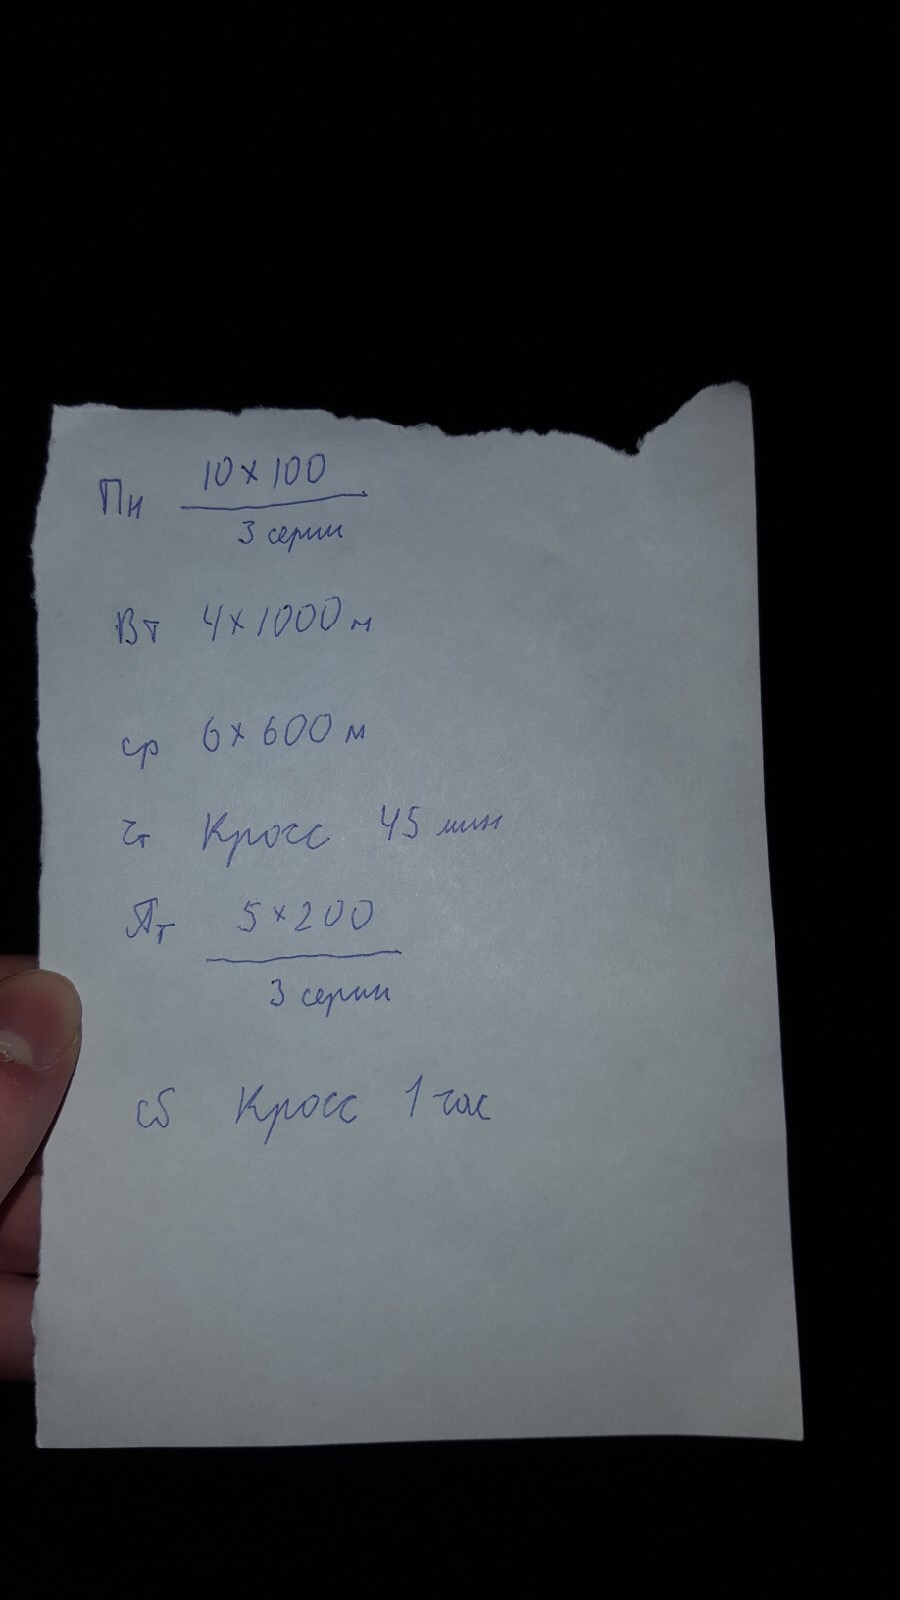 Пн 10 x 100
3 серии
Вт 4 x 1000 м
ср 6 x 600 м
чт Кросс 45 мин
Пт 5 x 200
3 серии
сб Кросс 1 час